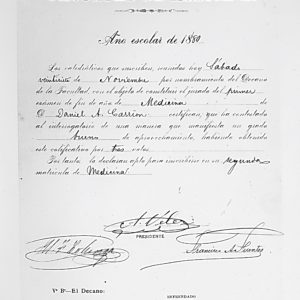 Año escolar de 1880.
Los catedráticos que suscriben, reunidos hoy Sábado
veintisiete de Noviembre por nombramiento del Decano
de la Facultad, con el objeto de constituir el jurado del primer
exámen de fin de año de Medicina de
D. Daniel A. Carrión certifican, que ha contestado
al interrogatorio de una manera que manifiesta un grado
bueno de aprovechamiento, habiendo obtenido
este calificativo por tres votos.
Por tanto lo declaran apto para inscribirse en su segunda
matrícula de Medicina
PRESIDENTE
Vº Bº—El Decano: